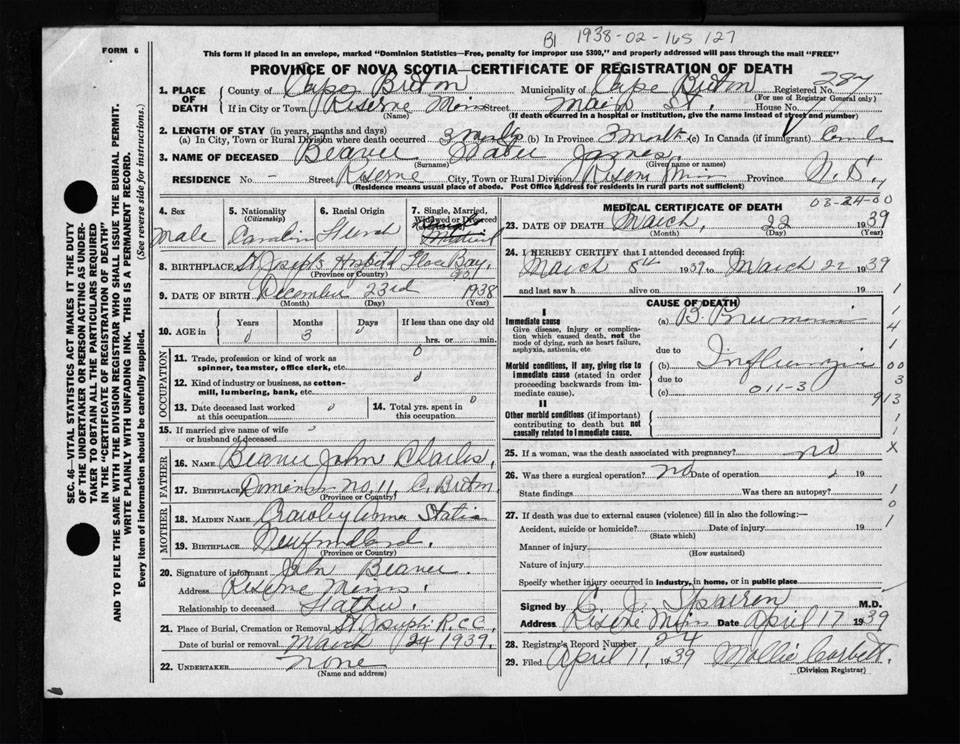 B1 1938-02-165 127
FORM 6
This form if placed in an envelope, marked "Dominion Statistics—Free, penalty for improper use $300," and properly addressed will pass through the mail "FREE"
PROVINCE OF NOVA SCOTIA—CERTIFICATE OF REGISTRATION OF DEATH
1. PLACE OF DEATH County of Cape Breton Municipality of Cape Breton Registered No. 287
(For use of Registrar General only)
If in City or Town Reserve Mines Street Main St. House No.
(Name) (If death occurred in a hospital or institution, give the name instead of street and number)
2. LENGTH OF STAY (in years, months and days)
(a) In City, Town or Rural Division where death occurred 3 months (b) In Province 3 months (c) In Canada (if immigrant)
3. NAME OF DECEASED Beaver James
(Surname) (Given name or names)
RESIDENCE No. - Street Reserve City, Town or Rural Division Mines Province N.S.
(Residence means usual place of abode. Post Office Address for residents in rural parts not sufficient)
4. Sex 5. Nationality (Citizenship) 6. Racial Origin 7. Single, Married, Widowed or Divorced
Male
8. BIRTHPLACE St Joseph's Hospital Glace Bay,
(Province or Country)
9. DATE OF BIRTH December 23rd 1938
(Month) (Day) (Year)
10. AGE in Years Months Days If less than one day old
0 3 hrs. or min.
OCCUPATION
11. Trade, profession or kind of work as spinner, teamster, office clerk, etc. 0
12. Kind of industry or business, as cotton-mill, lumbering, bank, etc. 0
13. Date deceased last worked at this occupation 0 14. Total yrs. spent in this occupation 0
15. If married give name of wife or husband of deceased
FATHER
16. NAME Beaver John Charles,
17. BIRTHPLACE Dominion No. 11, C. Breton
(Province or Country)
MOTHER
18. MAIDEN NAME Anna Statia
19. BIRTHPLACE Newfoundland.
(Province or Country)
20. Signature of informant John Beaver
Address Reserve Mines
Relationship to deceased Father
21. Place of Burial, Cremation or Removal St Joseph R.C.C
Date of burial or removal March 24 1939.
22. UNDERTAKER None
(Name and address)
MEDICAL CERTIFICATE OF DEATH
03-24-00
23. DATE OF DEATH March, 22 1939
(Month) (Day) (Year)
24. I HEREBY CERTIFY that I attended deceased from:
March 8th 1939 to March 22 1939
and last saw h alive on 19
CAUSE OF DEATH
I
Immediate cause (a) B. Pneumonia
Give disease, injury or complication which caused death, not the mode of dying, such as heart failure, asphyxia, asthenia, etc.
due to
Morbid conditions, if any, giving rise to immediate cause (stated in order proceeding backwards from immediate cause). (b) Influenza
due to
(c) 011-3
II
Other morbid conditions (if important) contributing to death but not causally related to immediate cause.
25. If a woman, was the death associated with pregnancy? no
26. Was there a surgical operation? no Date of operation 19
State findings Was there an autopsy?
27. If death was due to external causes (violence) fill in also the following:—
Accident, suicide or homicide? Date of injury 19
(State which)
Manner of injury
(How sustained)
Nature of injury
Specify whether injury occurred in industry, in home, or in public place
Signed by M.D.
Address Reserve Mines Date April 17 1939
28. Registrar's Record Number 24
29. Filed April 11, 1939 Mollie Corbett
(Division Registrar)
SEC. 46—VITAL STATISTICS ACT MAKES IT THE DUTY
OF THE UNDERTAKER OR PERSON ACTING AS UNDER-
TAKER TO OBTAIN ALL THE PARTICULARS REQUIRED
IN THE "CERTIFICATE OF REGISTRATION OF DEATH"
AND TO FILE THE SAME WITH THE DIVISION REGISTRAR WHO SHALL ISSUE THE BURIAL PERMIT.
WRITE PLAINLY WITH UNFADING INK. THIS IS A PERMANENT RECORD.
Every item of information should be carefully supplied. (See reverse side for instructions.)